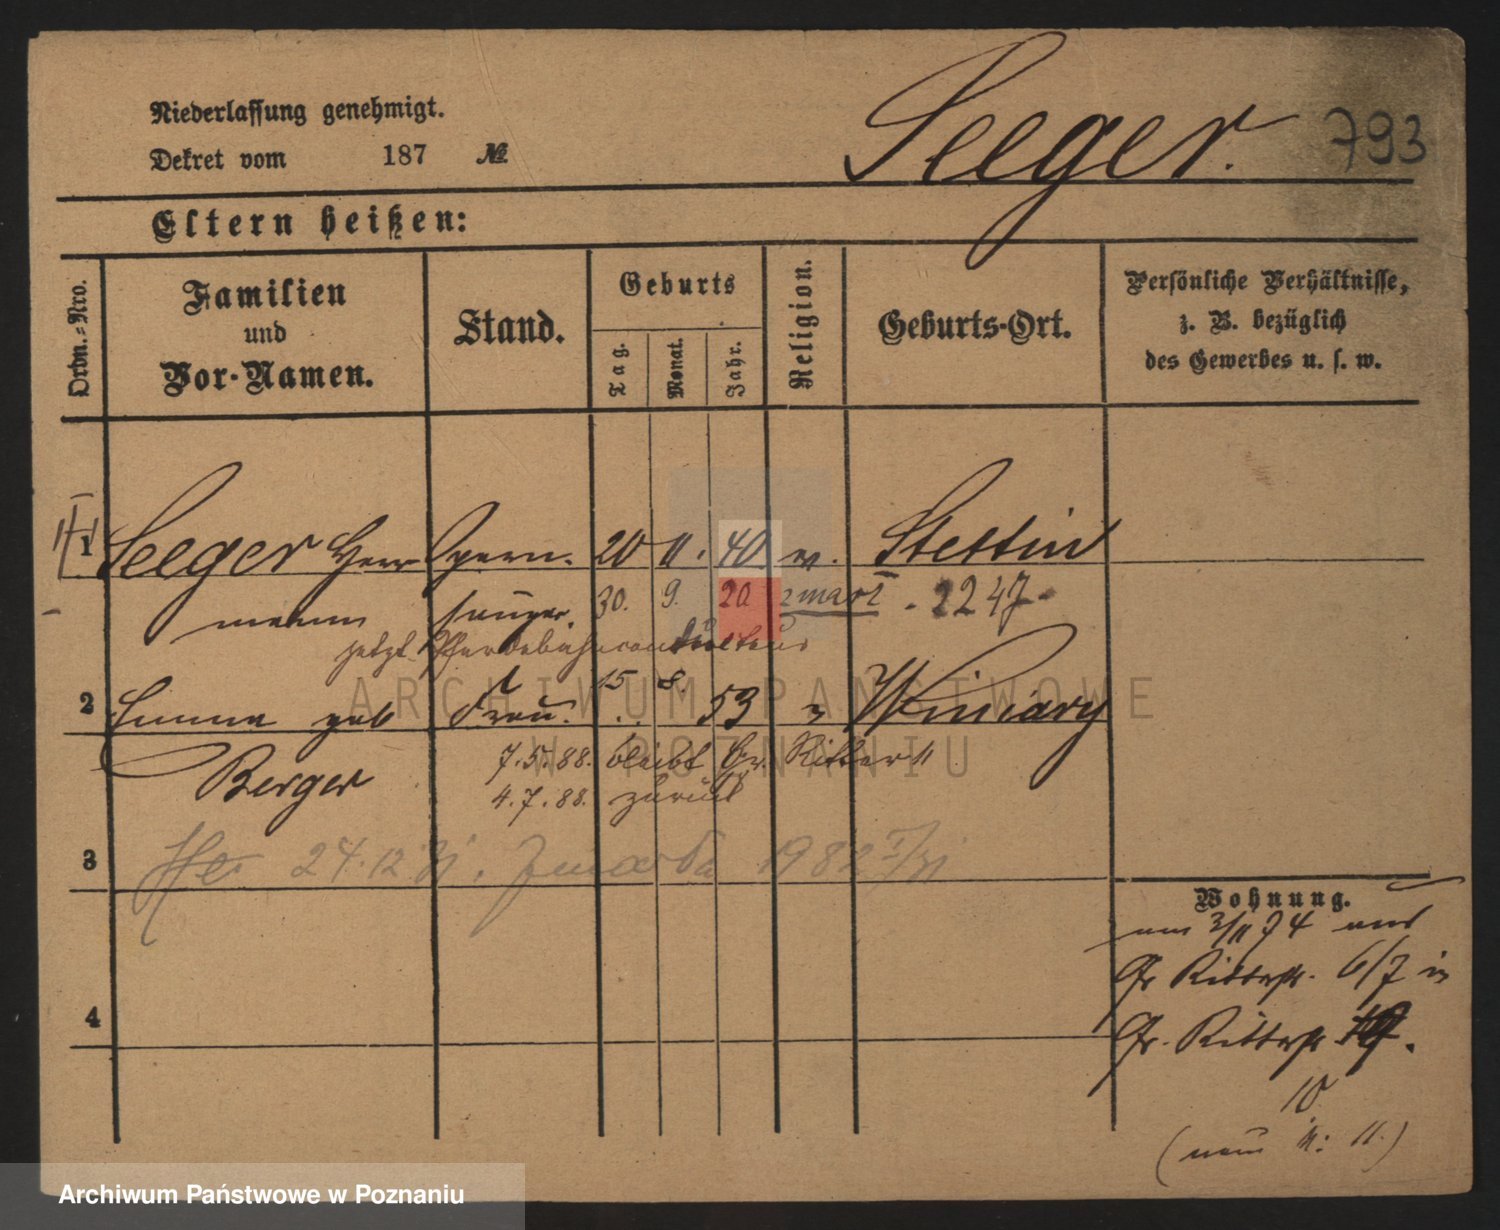 Niederlassung genehmigt.
Dekret vom 187 №
Seeger. 793
Eltern heißen:
Ordn.-Nro.
Familien und Vor-Namen.
Stand.
Geburts
Tag.
Monat.
Jahr.
Religion.
Geburts-Ort.
Persönliche Verhältnisse,
z. B. bezüglich
des Gewerbes u. s. w.
1 Seeger Herr Opern- 20 11. 40 ev. Stettin
mann sänger. 30. 9. 20 zmarł - 2247 -
jetzt Pferdebahncontrolleur
2 Emma geb Frau. 15 8. 53 " Winiary
Berger
7.5.88. bleibt Gr. Ritterst
4.7.88. zurück
3 24.12 31. zmarła 1982
4
Wohnung.
am 3/11 74 aus
Gr Ritterstr. 6/7 in
Gr. Ritterstr.
10
(neu N: 11.)
ARCHIWUM PAŃSTWOWE
W POZNANIU
Archiwum Państwowe w Poznaniu